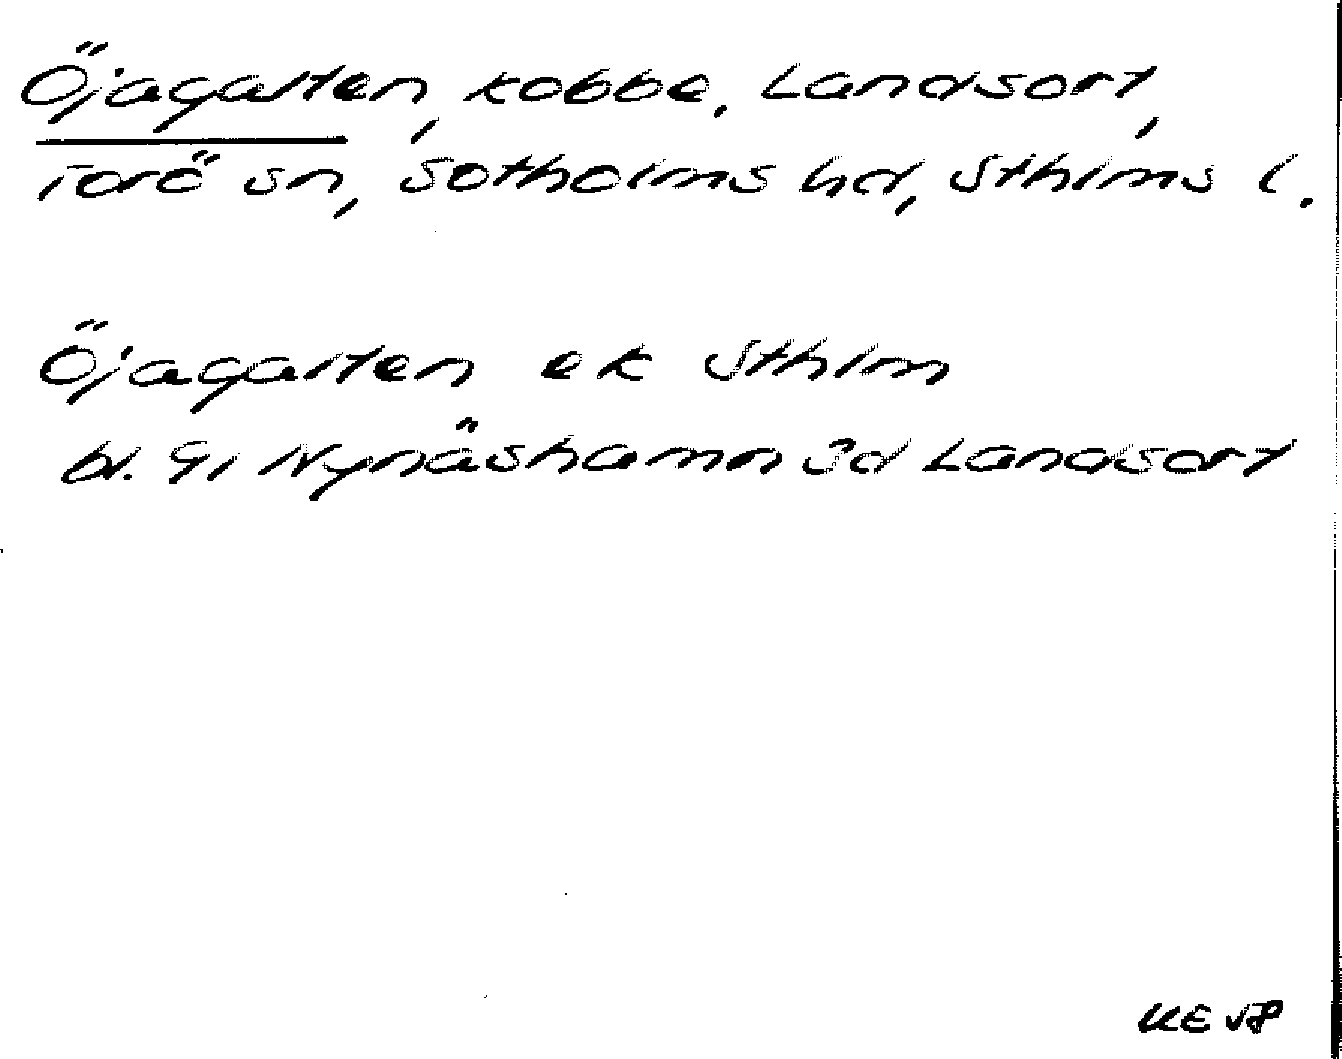 Öjagalten, kobbe, Landsort,
Torö sn, Sotholms hd, Sthlms l.
Öjagalten ek Sthlm
bl. 9i Nynäshamn 3d Landsort